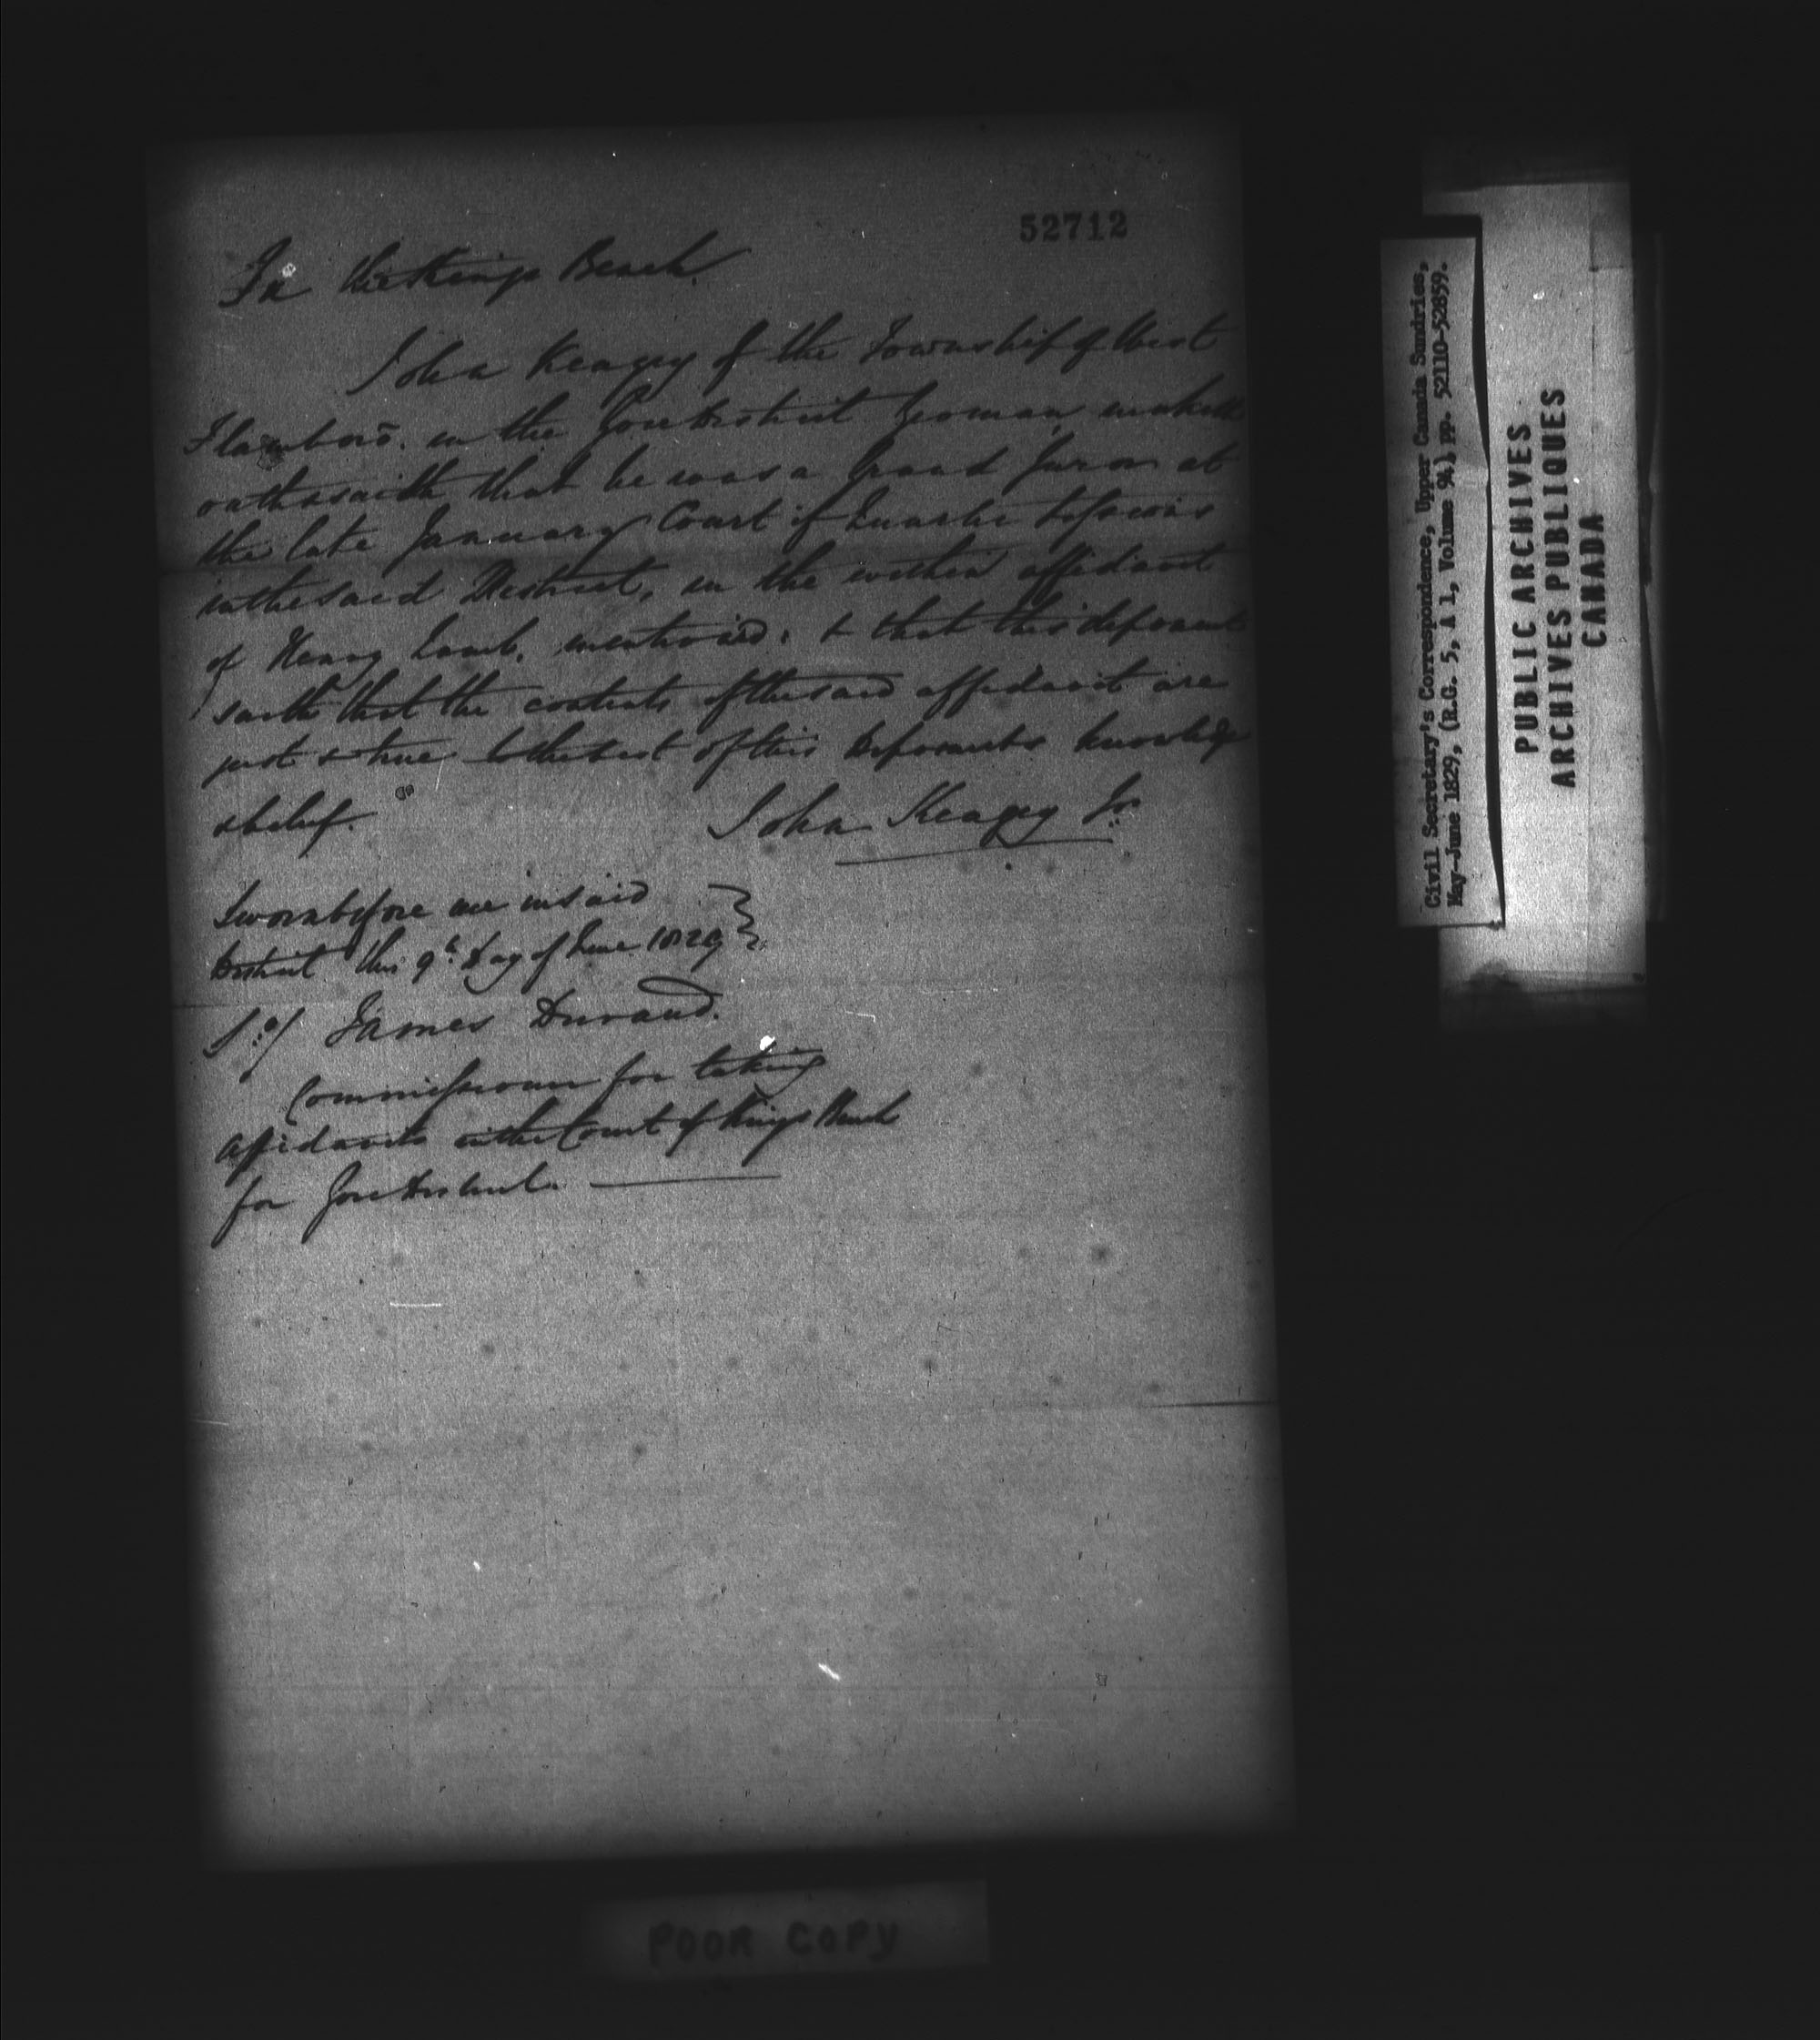 52712
In the Kings Bench.
John Keagey of the Township of West
Flamboro. in the Gore District Yeoman, maketh
oath & saith that he was a Grand Juror at
the late January Court of Quarter Sessions
in the said District, in the within affidavit
of Henry Lamb, mentioned, & that this deponent
saith that the contents of the said affidavit are
just & true to the best of this Deponents knowledge
& belief.
John Keagey Jr.
Sworn before me in said
District this 9th Day of June 1829
James Durand.
Commissioner for taking
Affidavits in the Court of Kings Bench
for Gore District.
Civil Secretary's Correspondence, Upper Canada Sundries,
May-June 1829, (R.G. 5, A 1, Volume 94) pp. 52110-52859.
PUBLIC ARCHIVES
ARCHIVES PUBLIQUES
CANADA
POOR COPY